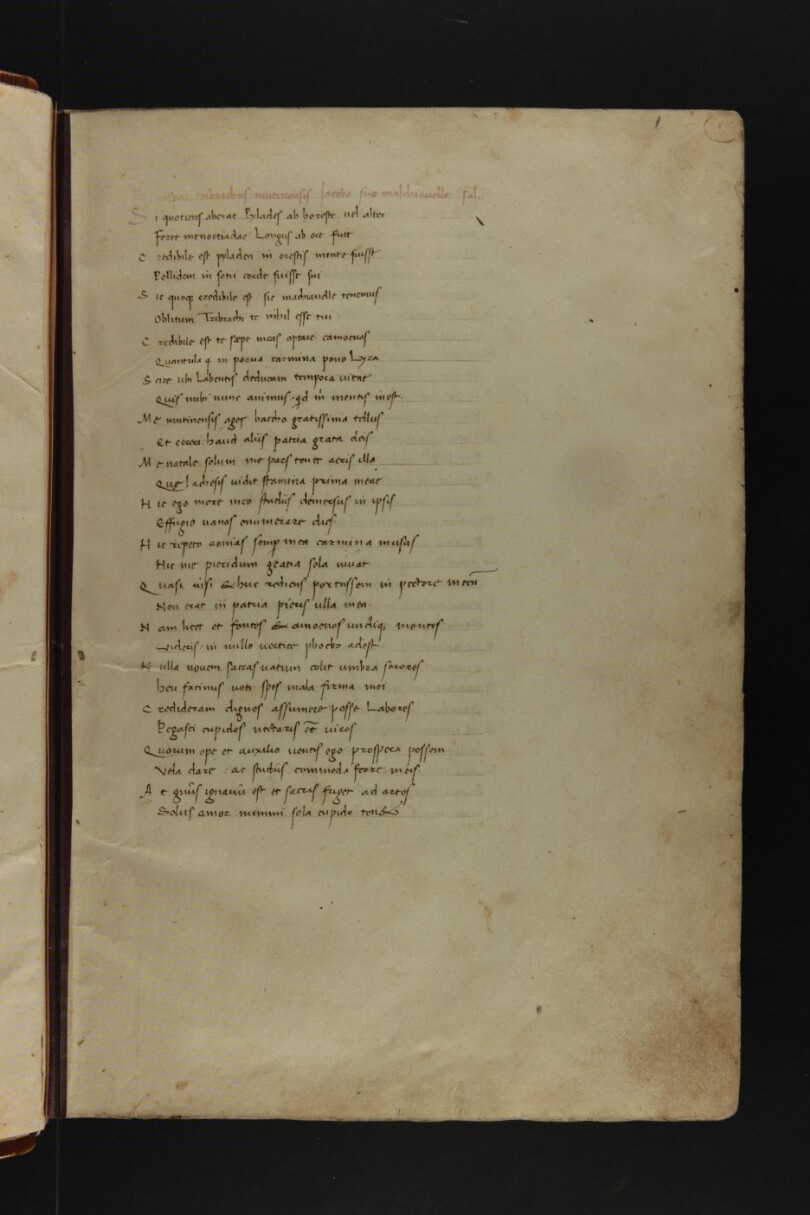 Gaspar tribrachus mutinensis Jacobo suo malchiavello Sal.
Si quotiens aberat Pylades ab horeste vel alter
Forte menoetiadae Longius ab ore fuit
Credibile est pyladen in orestis mente fuisse
Pellidem in sotii corde fuisse sui
Sic quoque credibile est sic machiavelle tenemus
Oblitum Tribrachi te nihil esse tui
Credibile est te saepe meas optare camoenas
in parva carmina pono Lyra
Scire ubi Labentis deducam tempora vitae
Quis mihi nunc animus, quid in mentis inest
Me mutinensis ager baccho gratissima tellus
Et cereri haud aliis patria grata deis
Me natale solum me pars tenet aeris illa
Que lachesis vidit stamina prima meae
Hic ego more meo studiis demersus in ipsis
Effugio vanos enumerare dies
Hic repeto aonias semper mea carmina musas
Hic me pieridum gratia sola iuvat
Quasi nisi & huc rediens portassem in pectore mecum
Non erat in patria pieris ulla mea
Nam licet et fontes & amoenos undique montes
Videris in nullo vertice phoebo adest
Nulla novem sacras vatum colit umbra sorores
heu facinus voti spes mala firma mei
Credideram dignos assumere posse Labores
Pegasei cupidos nectaris esse viros
Quorum ope et auxilio ventis ego prospera possem
Vela dare: ac studiis commoda ferre meis
At genus ignavum est et sacras friget ad artes
Solus amor nummi sola cupido